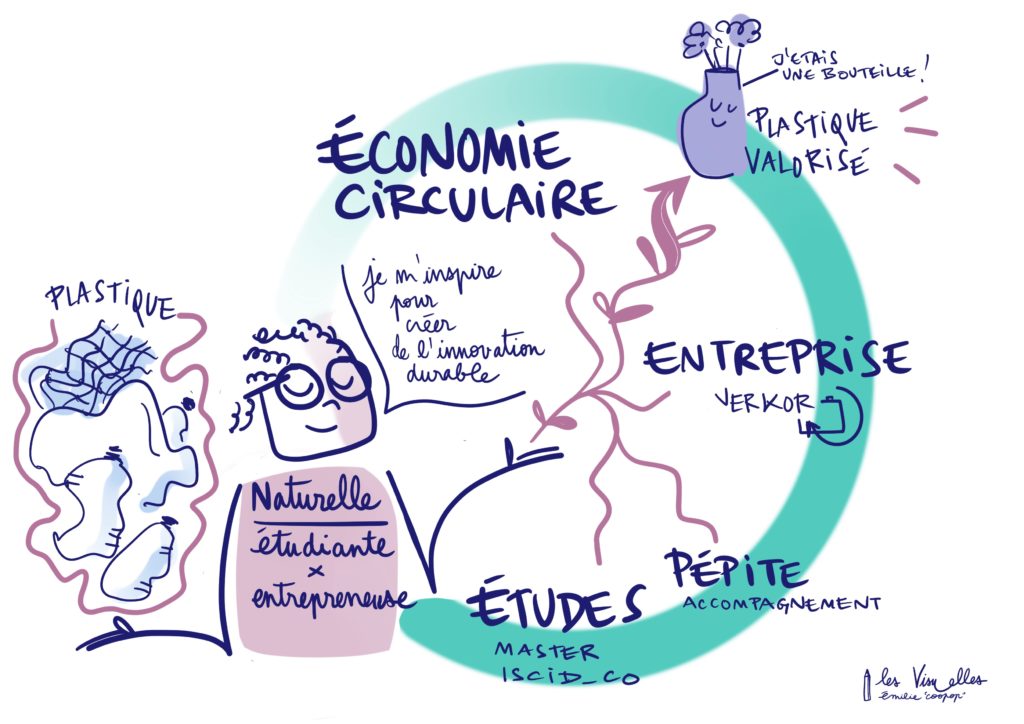 J'ETAIS
UNE BOUTEILLE !
PLASTIQUE
VALORISÉ
ÉCONOMIE
CIRCULAIRE
je m'inspire
pour
créer
de l'innovation
durable
PLASTIQUE
ENTREPRISE
VERKOR
Naturelle
étudiante
x
entrepreneuse
ÉTUDES
MASTER
ISCID_CO
PÉPITE
ACCOMPAGNEMENT
les Visuelles
émilie "coopop"